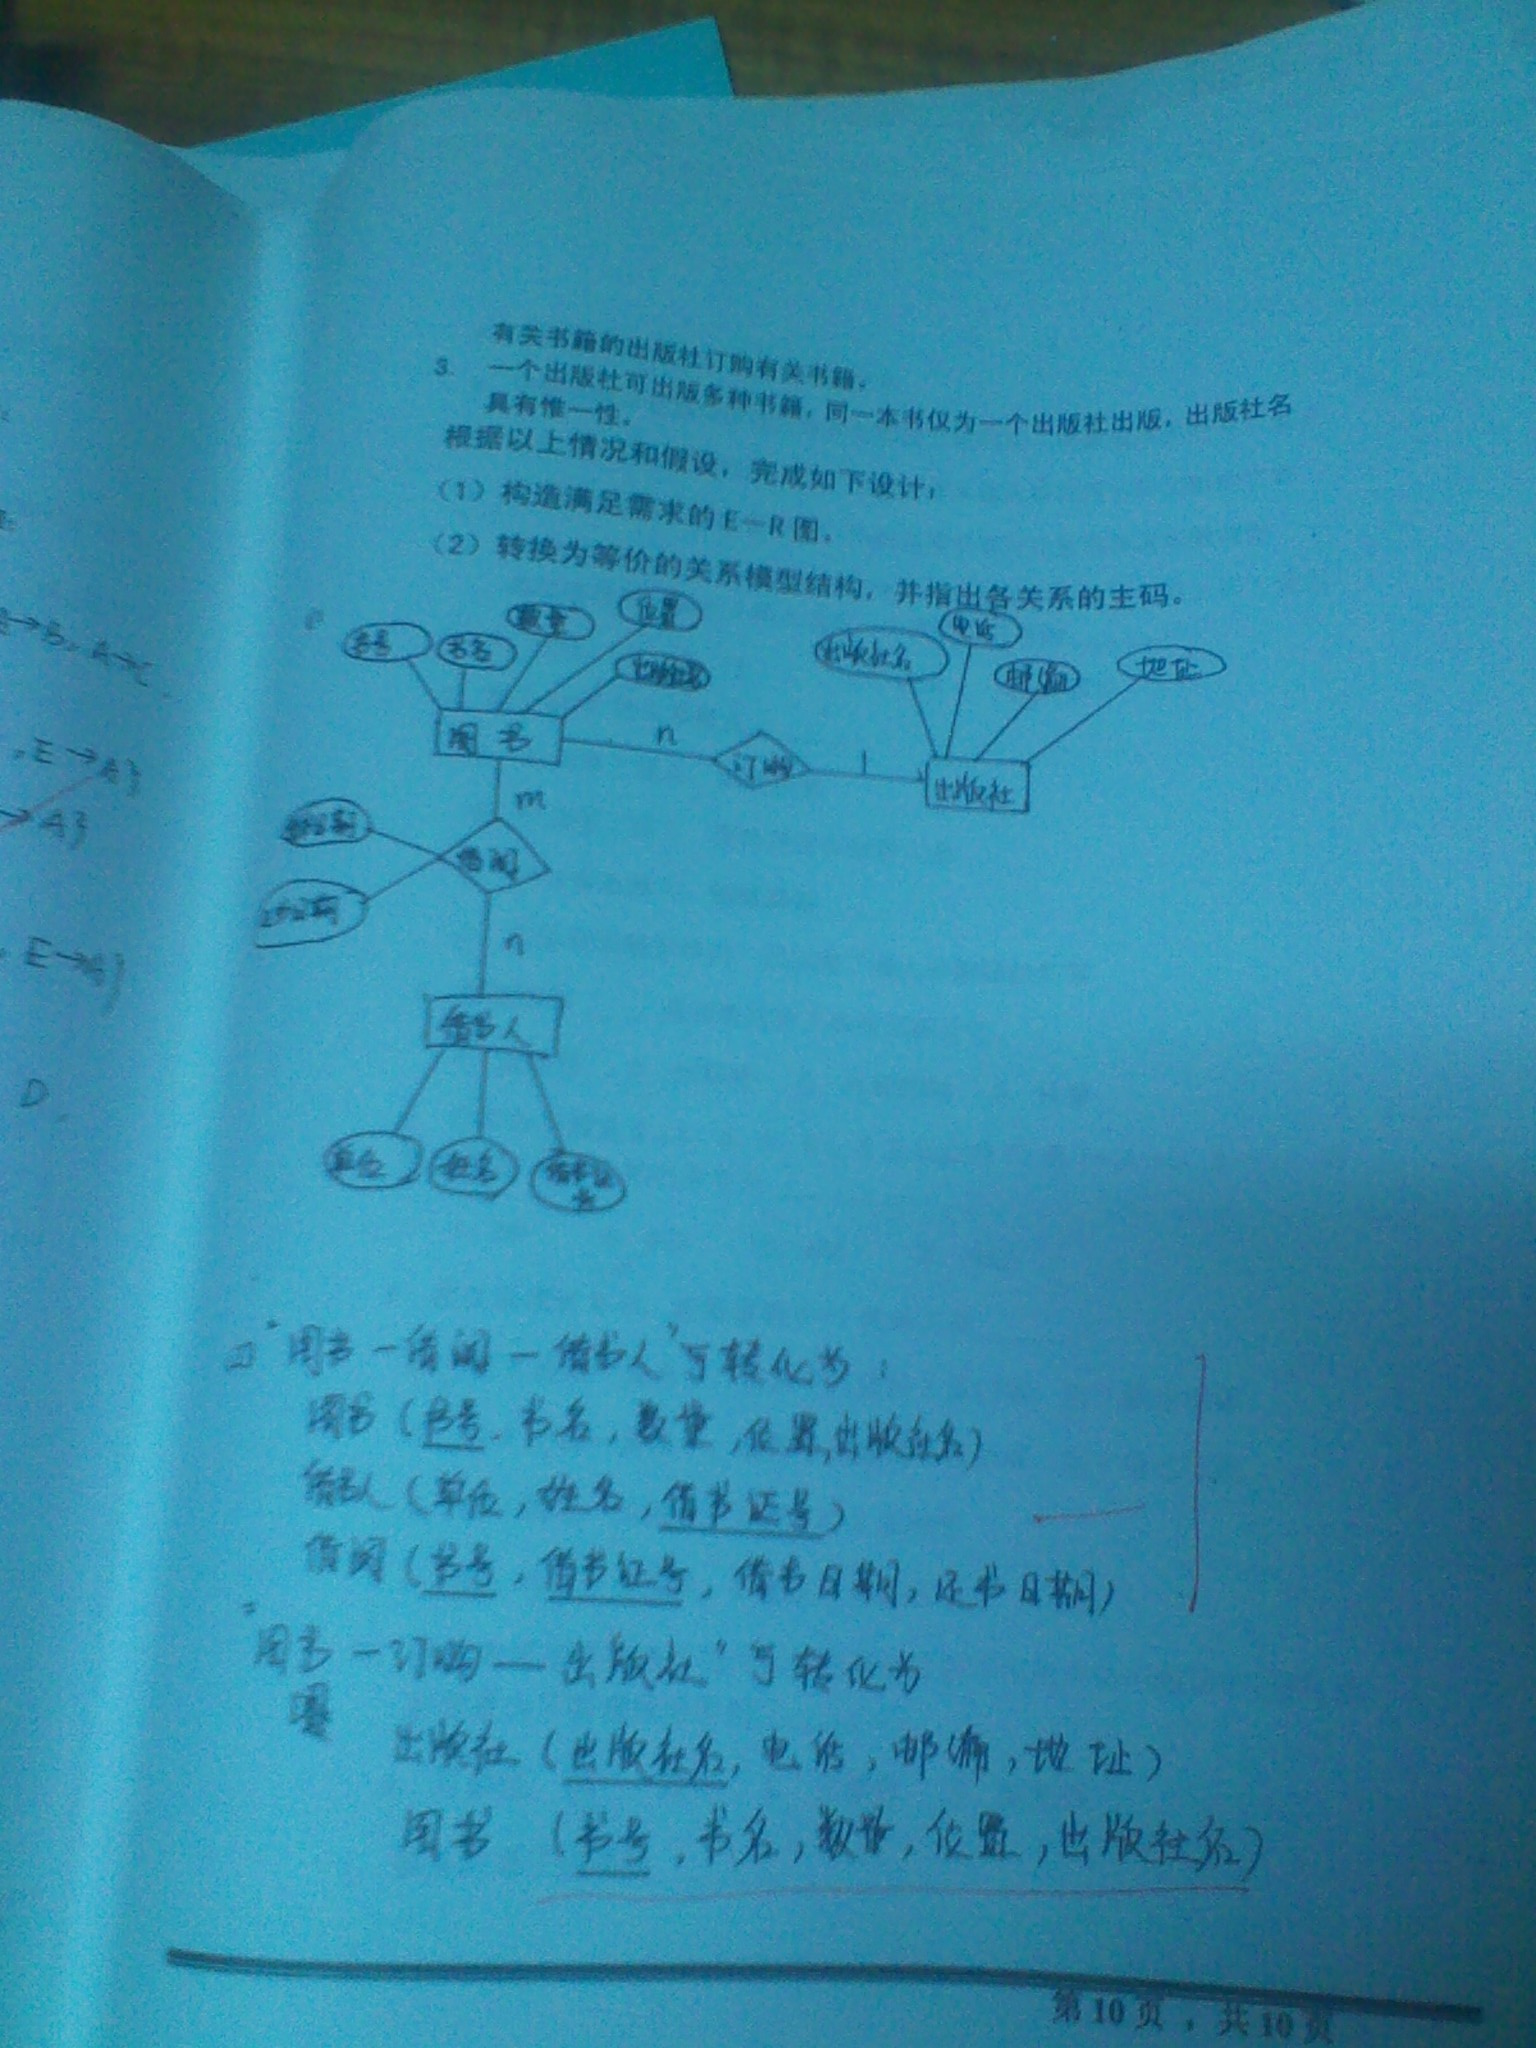 有关书籍的出版社订购有关书籍。
3. 一个出版社可出版多种书籍，同一本书仅为一个出版社出版，出版社名
具有惟一性。
根据以上情况和假设，完成如下设计：
（1）构造满足需求的E－R图。
（2）转换为等价的关系模型结构，并指出各关系的主码。
书号 书名 数量 位置 出版社名
出版社名 电话 邮编 地址
图书 n 订购 1 出版社
m
借书日期
借阅
还书日期
n
借书人
单位 姓名 借书证号
"图书－借阅－借书人"可转化为：
图书（书号、书名，数量，位置，出版社名）
借书人（单位，姓名，借书证号）
借阅（书号，借书证号，借书日期，还书日期）
"图书－订购－出版社"可转化为
出版社（出版社名，电话，邮编，地址）
图书（书号，书名，数量，位置，出版社名）
第 10 页 ，共 10 页
A→C
，E→A}
→A}
，E→A}
D